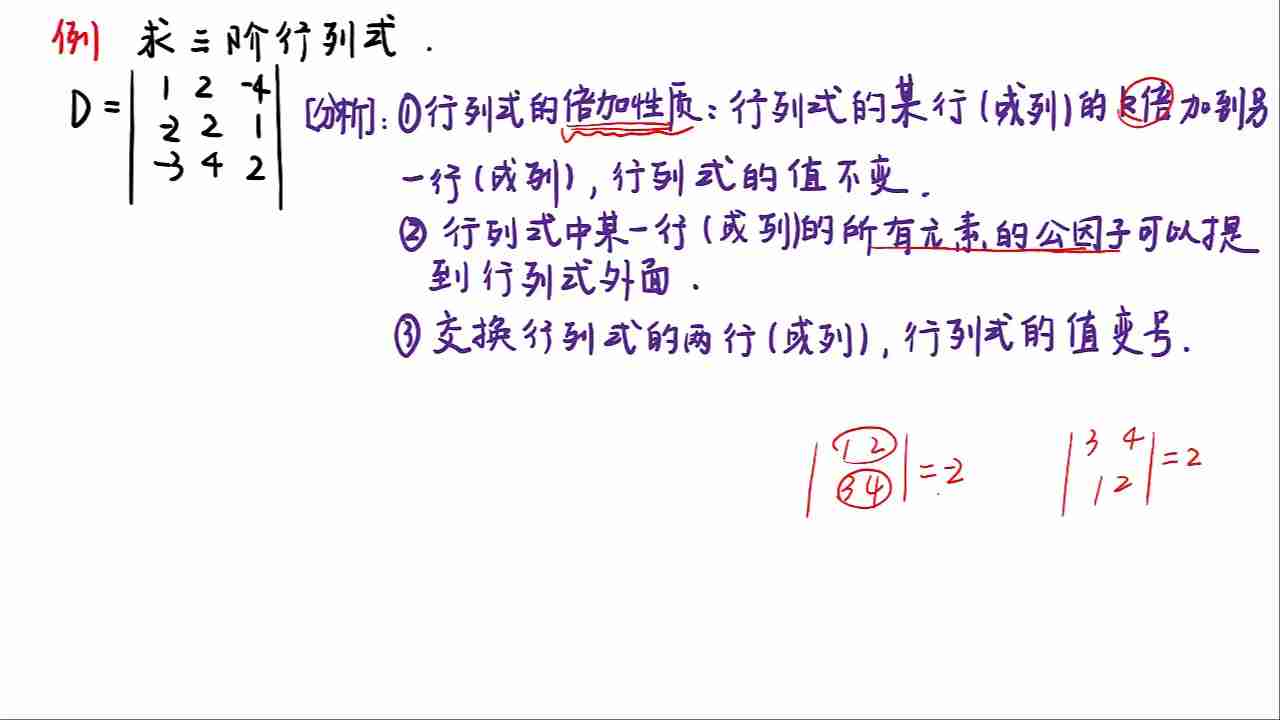 例 求三阶行列式.
D = | 1 2 -4 |
| -2 2 1 |
| -3 4 2 |
[分析]: ①行列式的倍加性质: 行列式的某行(或列)的k倍加到另
一行(或列), 行列式的值不变.
② 行列式中某一行(或列)的所有元素的公因子可以提
到行列式外面.
③ 交换行列式的两行(或列), 行列式的值变号.
| 1 2 |
| 3 4 | = -2
| 3 4 |
| 1 2 | = 2